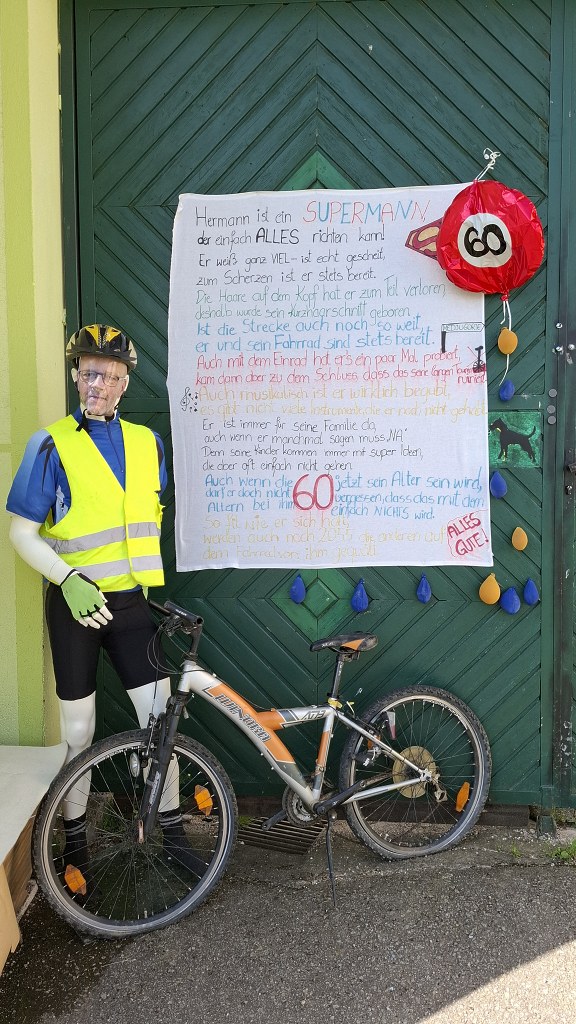 Hermann ist ein SUPERMANN,
der einfach ALLES richten kann!
Er weiß ganz VIEL – ist echt gescheit,
zum Scherzen ist er stets bereit.
Die Haare auf dem Kopf hat er zum Teil verloren
deshalb wurde sein Kurzhaarschnitt geboren.
Ist die Strecke auch noch so weit,
er und sein Fahrrad sind stets bereit.
Auch mit dem Einrad hat er's ein paar Mal probiert,
kam dann aber zu dem Schluss, dass das seine langen
ruiniert.
Auch musikalisch ist er wirklich begabt,
es gibt nicht viele Instrumente die er noch nicht gehabt.
Er ist immer für seine Familie da,
auch wenn er manchmal sagen muss „NA"
Denn seine Kinder kommen immer mit super Ideen,
die aber oft einfach nicht gehen.
Auch wenn die 60 jetzt sein Alter sein wird,
darf er doch nicht vergessen, dass das mit dem
Altern bei ihm einfach NICHTS wird.
So fit wie er sich hält,
werden auch noch
dem
ALLES
GUTE!
60